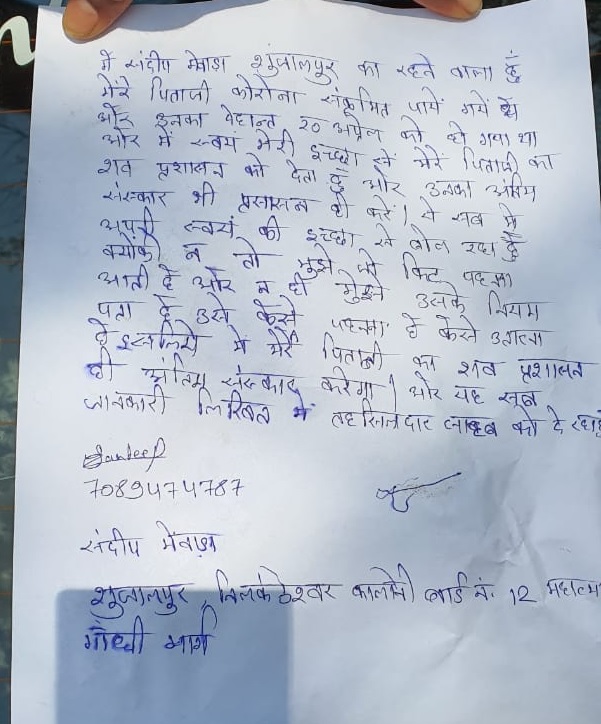 में संदीप मेवाड़ा शुंजालपुर का रहने वाला हुं
मेरे पिताजी कोरोना संक्रमित पायें गयें थे
और इनका देहान्त २० अप्रेल को हो गया था
और में स्वयं मेरी इच्छा से मेरे पिताजी का
शव प्रशासन को देता हुं और उनका अतिम
संस्कार भी प्रसासन ही करें। ये सब में
अपनी स्वयं की इच्छा से बोल रहा हुँ
क्योंकी न तो मुझे पी किट पहनना
आती हें और न ही मुझे उसके नियम
पता हें उसे केसे पहनना हें केसे उतारना
हें इसलिये में मेरे पिताजी का शव प्रशासन
ही अंतिम संस्कार करेगा। और यह सब
जानकारी लिखित में तहसिलदार साहब को दे रहा हुं
Sandeep
7089474787
संदीप मेवाड़ा
शुजालपुर, निलकंठेश्वर कालोनी वार्ड नं. 12 महात्मा
गाँधी मार्ग